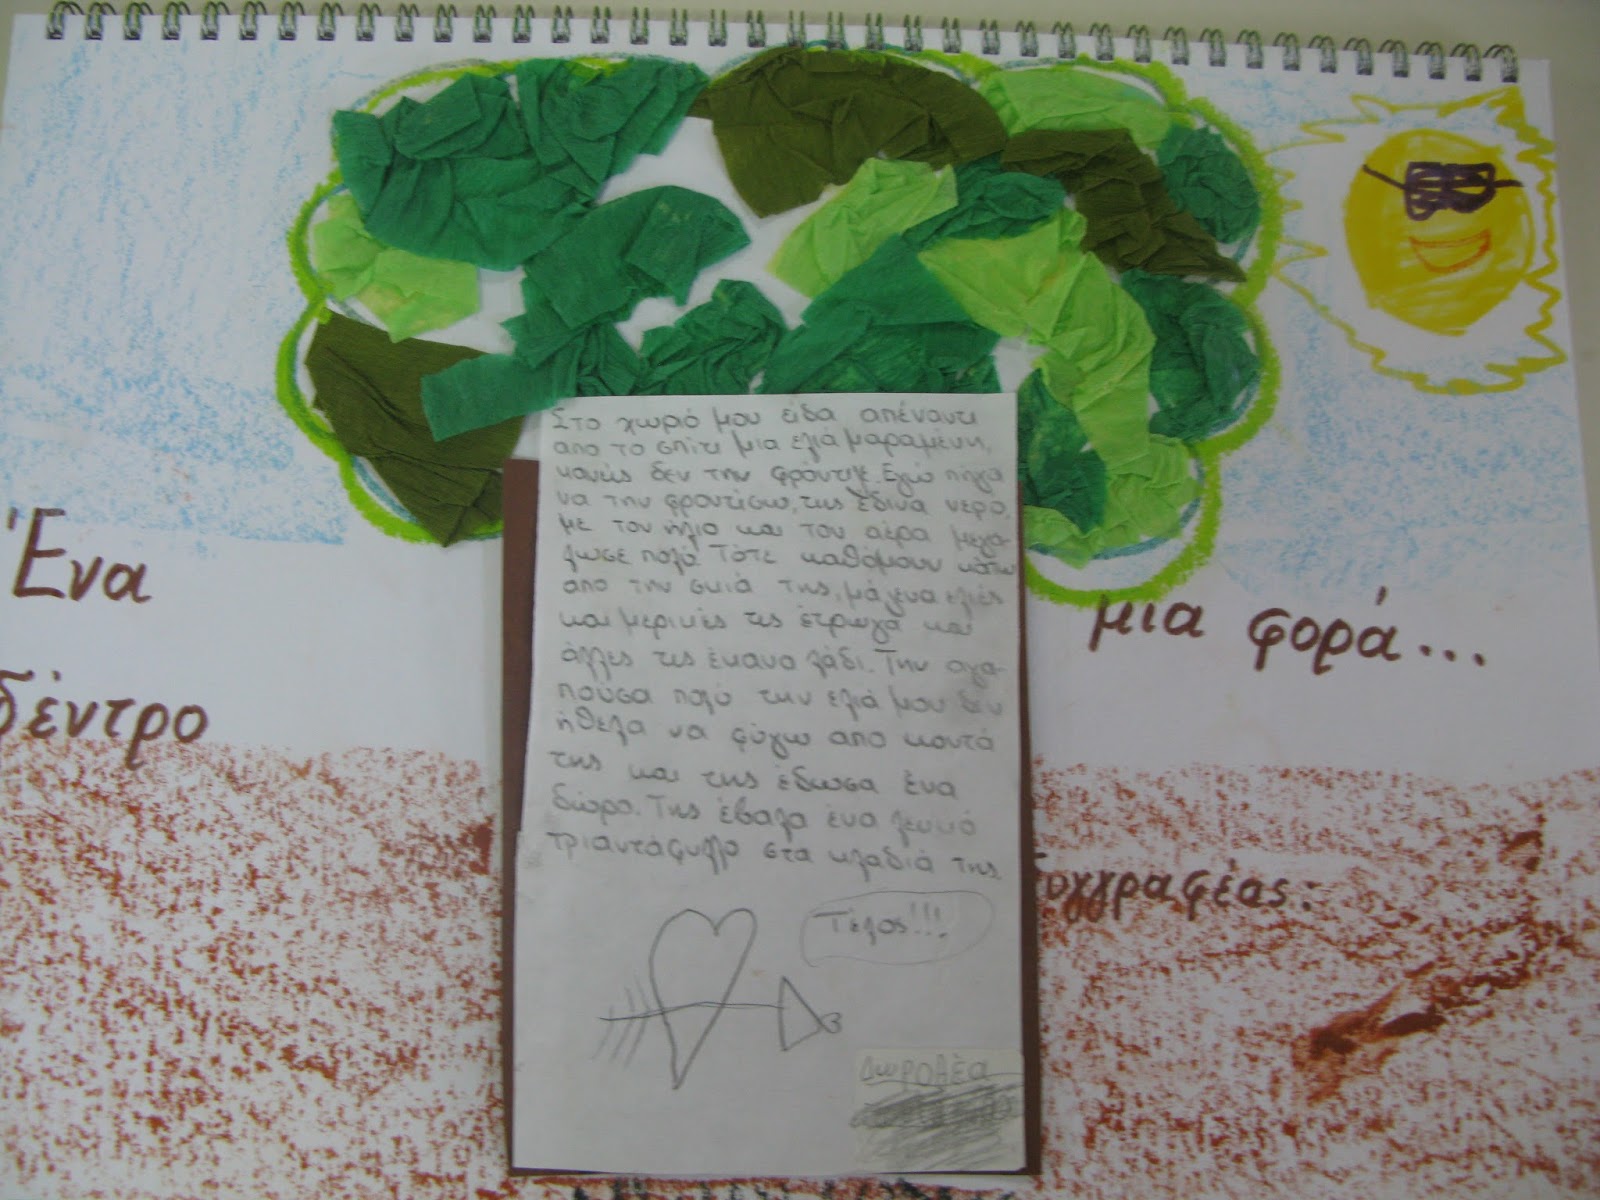 Ένα
δέντρο
μια φορά...
Στο χωριό μου είδα απέναντι
απο το σπίτι μια ελιά μαραμένη,
κανείς δεν την φρόντιζε. Εγώ πήγα
να την φροντίσω, της έδινα νερό,
με τον ήλιο και τον αέρα μεγά-
λωσε πολύ. Τότε καθόμουν κάτω
απο την σκιά της, μάζευα ελιές
και μερικές τις έτρωγα και
άλλες τις έκανα λάδι. Την αγα-
πούσα πολύ την ελιά μου δεν
ήθελα να φύγω απο κοντά
της και της έδωσα ένα
δώρο. Της έβαλα ένα λευκό
τριαντάφυλλο στα κλαδιά της.
Τέλος!!!
Συγγραφέας:
Δωροθέα